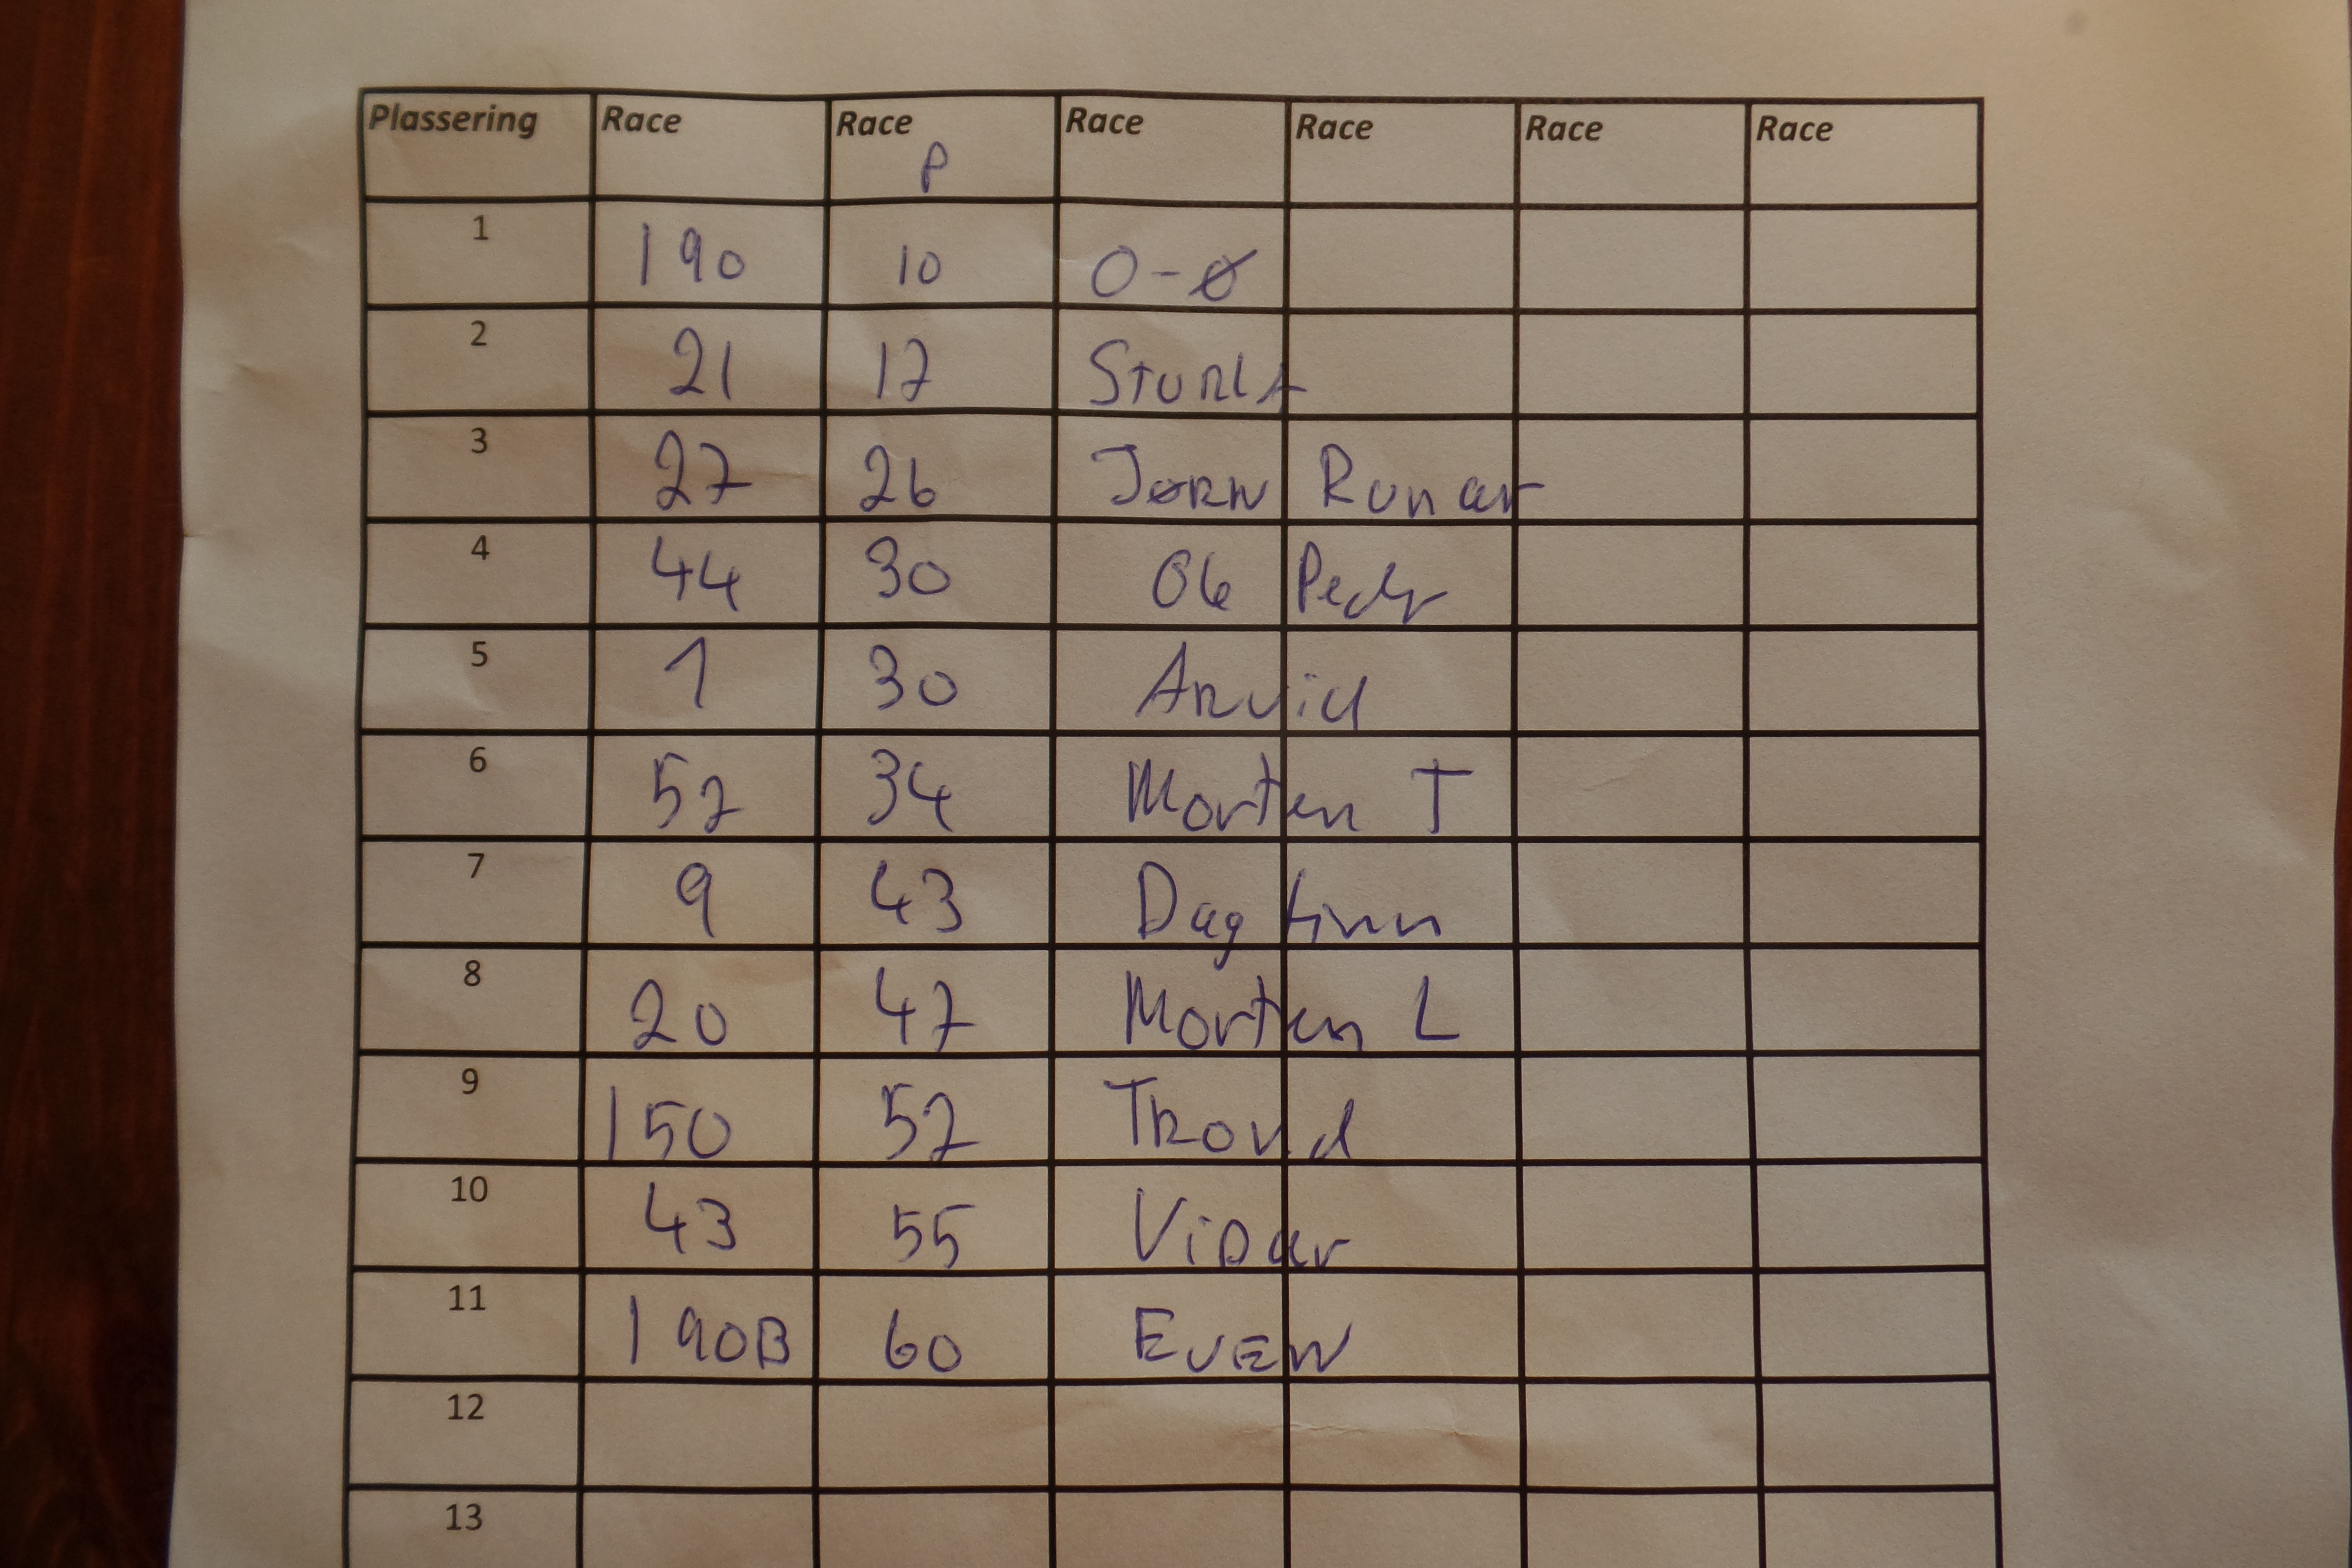 Plassering Race Race Race Race Race Race
P
1 190 10 O-Ø
2 21 17 Sturla
3 27 26 Jørn Runar
4 44 30 Ole Peder
5 1 30 Arvid
6 57 34 Morten T
7 9 43 Dag finn
8 20 47 Morten L
9 150 52 Trond
10 43 55 Vidar
11 190B 60 Even
12
13